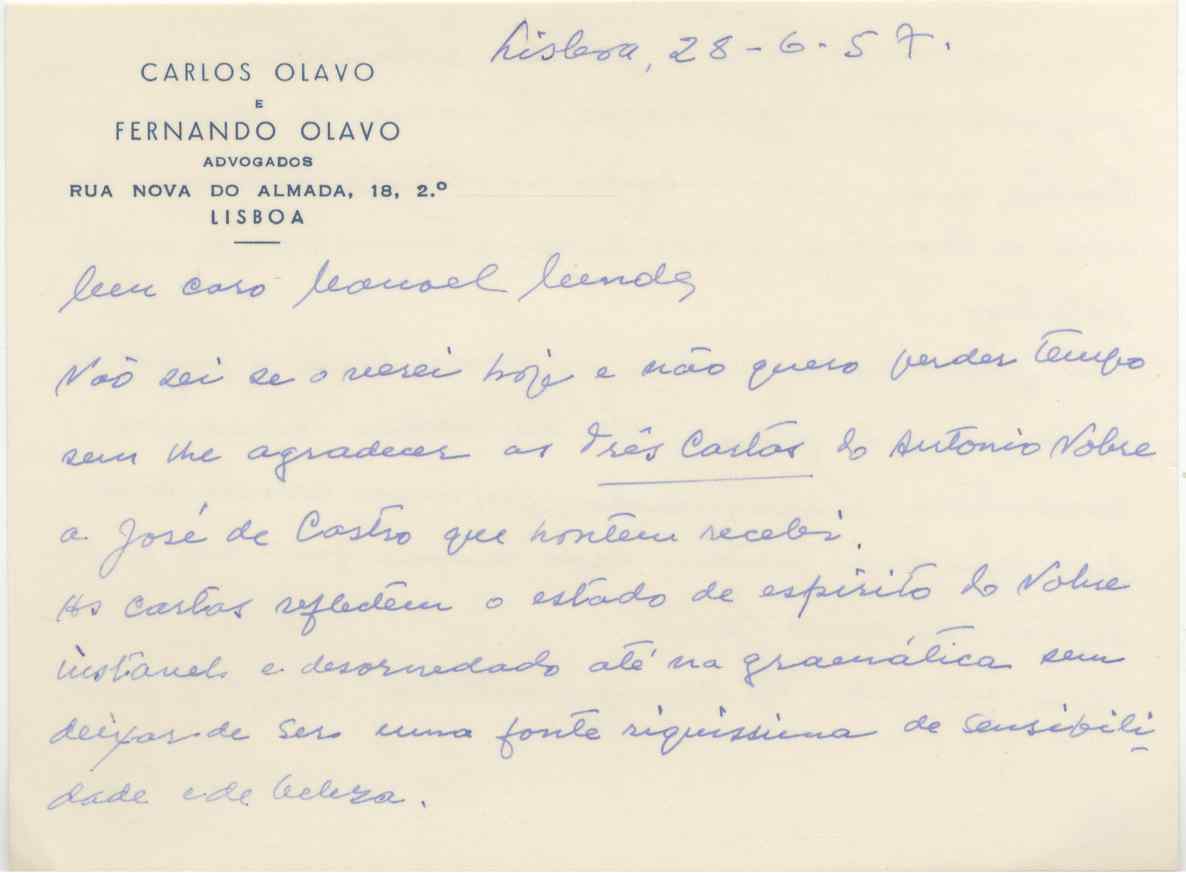 Lisboa, 28-6-57.
CARLOS OLAVO
E
FERNANDO OLAVO
ADVOGADOS
RUA NOVA DO ALMADA, 18, 2.º
LISBOA
Meu caro Manoel Mendes
Não sei se o verei hoje e não quero perder tempo
sem lhe agradecer as Três Cartas do Antonio Nobre
a José de Castro que hontem recebi.
As cartas refletem o estado de espirito do Nobre
instavel e desordenado até na gramática sem
deixar de ser uma fonte riquissima de sensibili-
dade e de beleza.